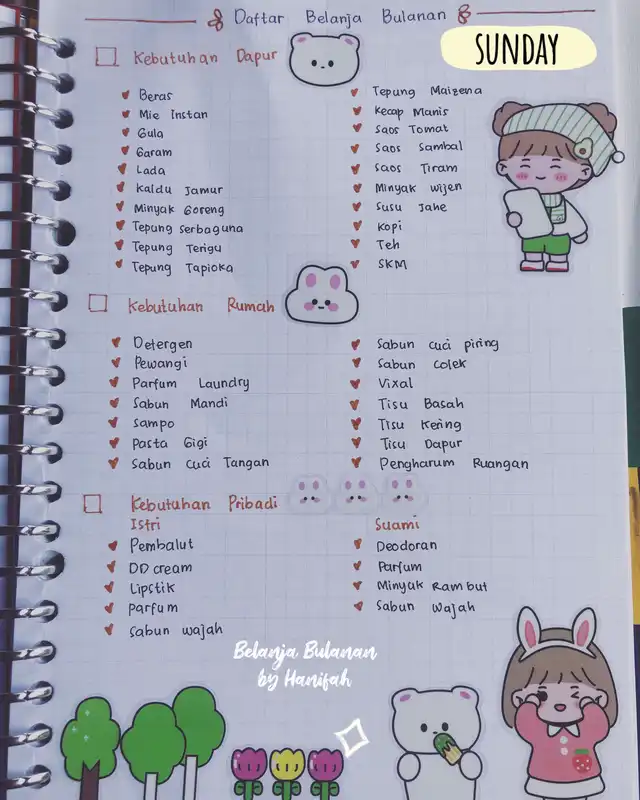 Daftar Belanja Bulanan
SUNDAY
Kebutuhan Dapur
Beras
Mie Instan
Gula
Garam
Lada
Kaldu Jamur
Minyak Goreng
Tepung Serbaguna
Tepung Terigu
Tepung Tapioka
Tepung Maizena
Kecap Manis
Saos Tomat
Saos Sambal
Saos Tiram
Minyak Wijen
Susu Jahe
Kopi
Teh
SKM
Kebutuhan Rumah
Detergen
Pewangi
Parfum Laundry
Sabun Mandi
Sampo
Pasta Gigi
Sabun Cuci Tangan
Sabun Cuci piring
Sabun Colek
Vixal
Tisu Basah
Tisu Kering
Tisu Dapur
Pengharum Ruangan
Kebutuhan Pribadi
Istri
Pembalut
DD cream
Lipstik
Parfum
Sabun wajah
Suami
Deodoran
Parfum
Minyak Rambut
Sabun Wajah
Belanja Bulanan
by Hanifah